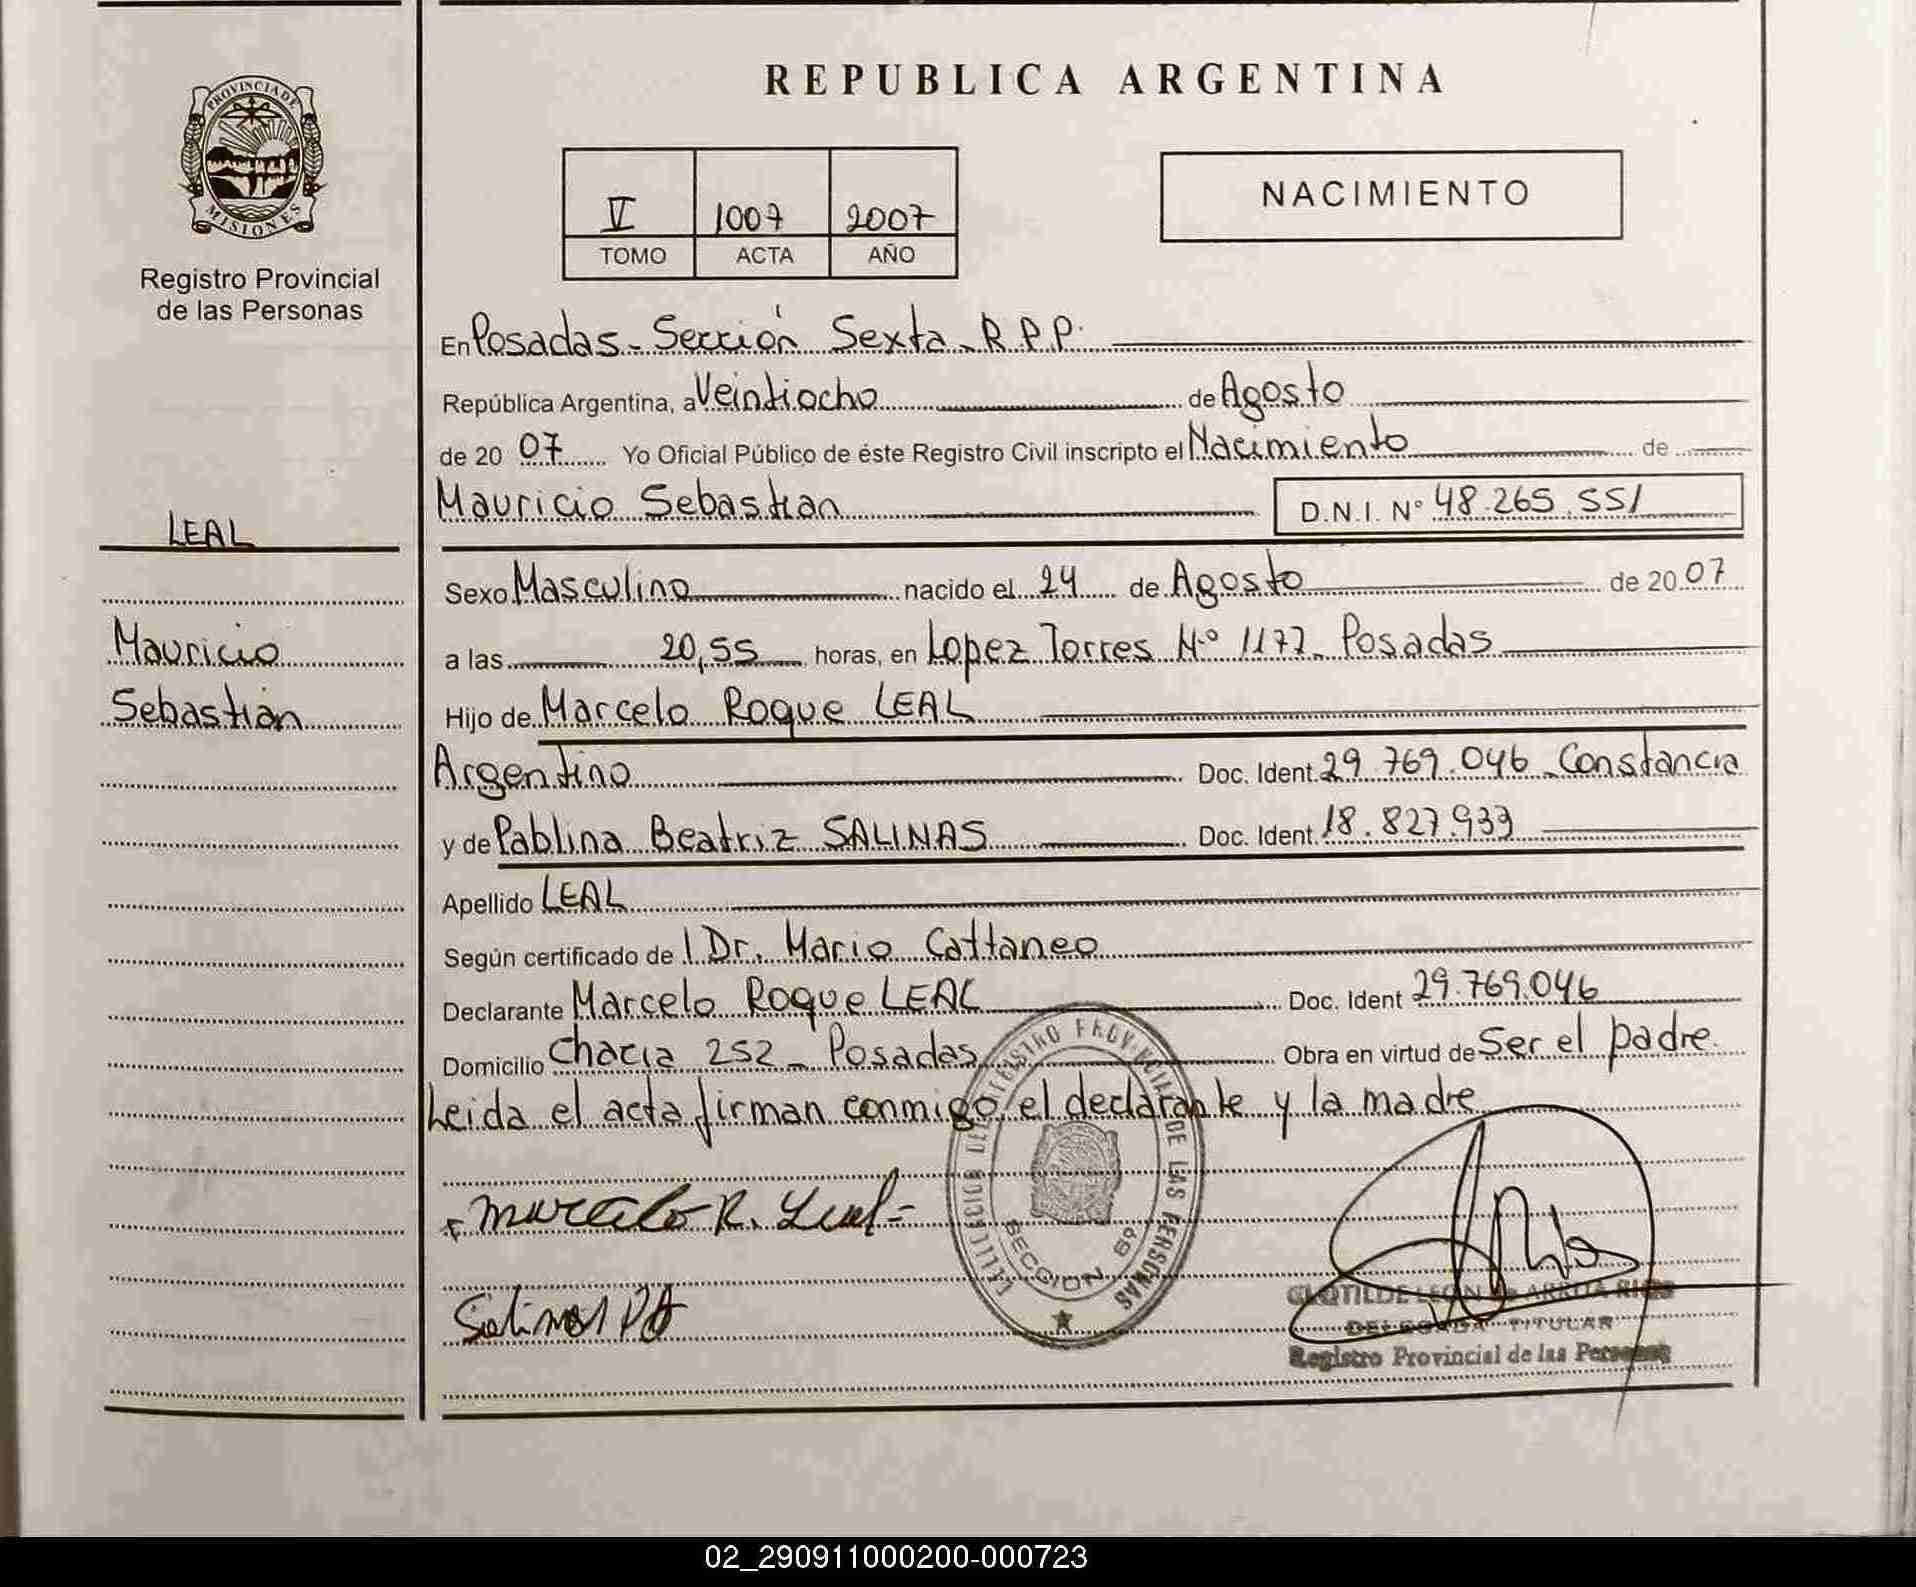 REPUBLICA ARGENTINA
PROVINCIA DE MISIONES
Registro Provincial
de las Personas
V 1007 2007
TOMO ACTA AÑO
NACIMIENTO
En Posadas - Sección Sexta - R.P.P.
República Argentina, a Veintiocho de Agosto
de 20 07 Yo Oficial Público de éste Registro Civil inscripto el Nacimiento de
Mauricio Sebastian D.N.I. Nº 48.265.551
LEAL
Mauricio
Sebastián
Sexo Masculino nacido el 24 de Agosto de 20 07
a las 20,55 horas, en Lopez Torres Nº 1177 - Posadas
Hijo de Marcelo Roque LEAL
Argentino Doc. Ident. 29.769.046 - Constancia
y de Pablina Beatriz SALINAS Doc. Ident. 18.827.939
Apellido LEAL
Según certificado de l Dr. Mario Cattaneo
Declarante Marcelo Roque LEAL Doc. Ident 29.769.046
Domicilio Chacra 252 - Posadas Obra en virtud de Ser el padre.
Leida el acta firman conmigo el declarante y la madre
Marcelo R. Leal
Salinas PB
DELEGACION DEL REGISTRO PROVINCIAL DE LAS PERSONAS
SECCION 6ª
DELEGADA TITULAR
Registro Provincial de las Personas
02_290911000200-000723